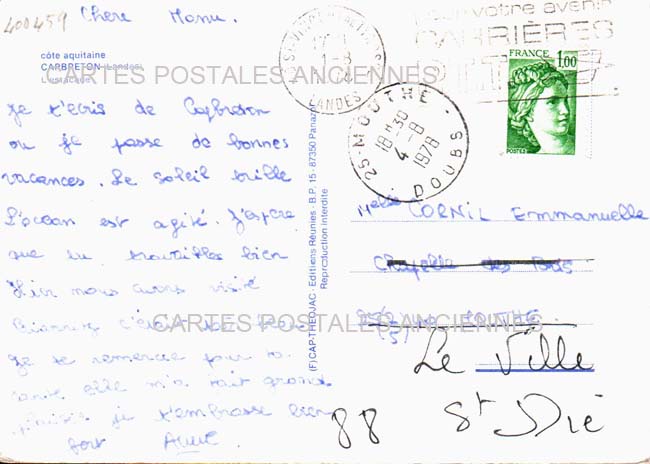 400459 Chere Manu.
côte aquitaine
CAPBRETON (Landes)
L'estacade
CARTES POSTALES ANCIENNES
Je t'écris de Capbreton
ou je passe de bonnes
vacances. Le soleil brille
L'océan est agité. J'espère
que tu travailles bien
Hier nous avons visité
Biarritz c'était très beau
CARTES POSTALES ANCIENNES
Je te remercie pour ta
carte elle m'a fait grand
plaisir je t'embrasse bien
fort Anne
(F)CAP-THEOJAC - Editions Réunies - B.P. 15 - 87350 Panazol
Reproduction interdite
LANDES
25-MOUTHE
18H30
4-8
1978
DOUBS
votre avenir
CARRIÈRES
FRANCE
1,00
POSTES
Melle CORNIL Emmanuelle
Chapelle des Bois
Le Ville
St Dié
88